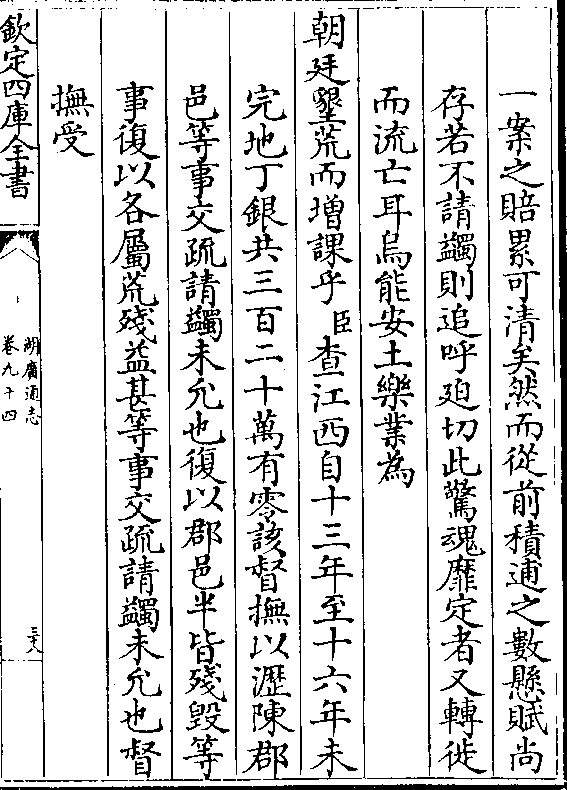 一案之賠累可清矣然而從前積逋之數懸賦尚
存若不請蠲則追呼廹切此驚魂靡定者又轉徙
而流亡耳烏能安土樂業為
朝廷墾荒而增課乎臣查江西自十三年至十六年未
完地丁銀共三百二十萬有零該督撫以瀝陳郡
邑等事交疏請蠲未允也復以郡邑半皆殘毀等
事復以各屬荒殘益甚等事交疏請蠲未允也督
撫受
欽定四庫全書
湖廣通志
卷九十四
三十八